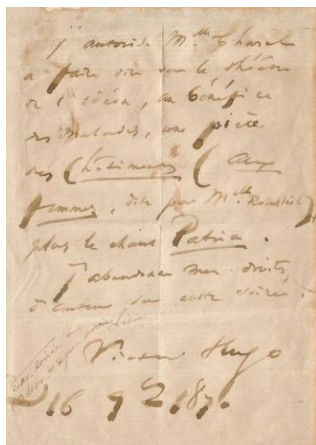 j'autorise Mlle Charel
à faire dire sur le théâtre
de l'odéon, au bénéfice
des malades, une pièce
des Châtiments (Aux
femmes, dite par Mlle Rousseil)
plus le chant Patria.
j'abandonne mes droits
d'auteur sur cette soirée.
Victor Hugo
16 9 1870